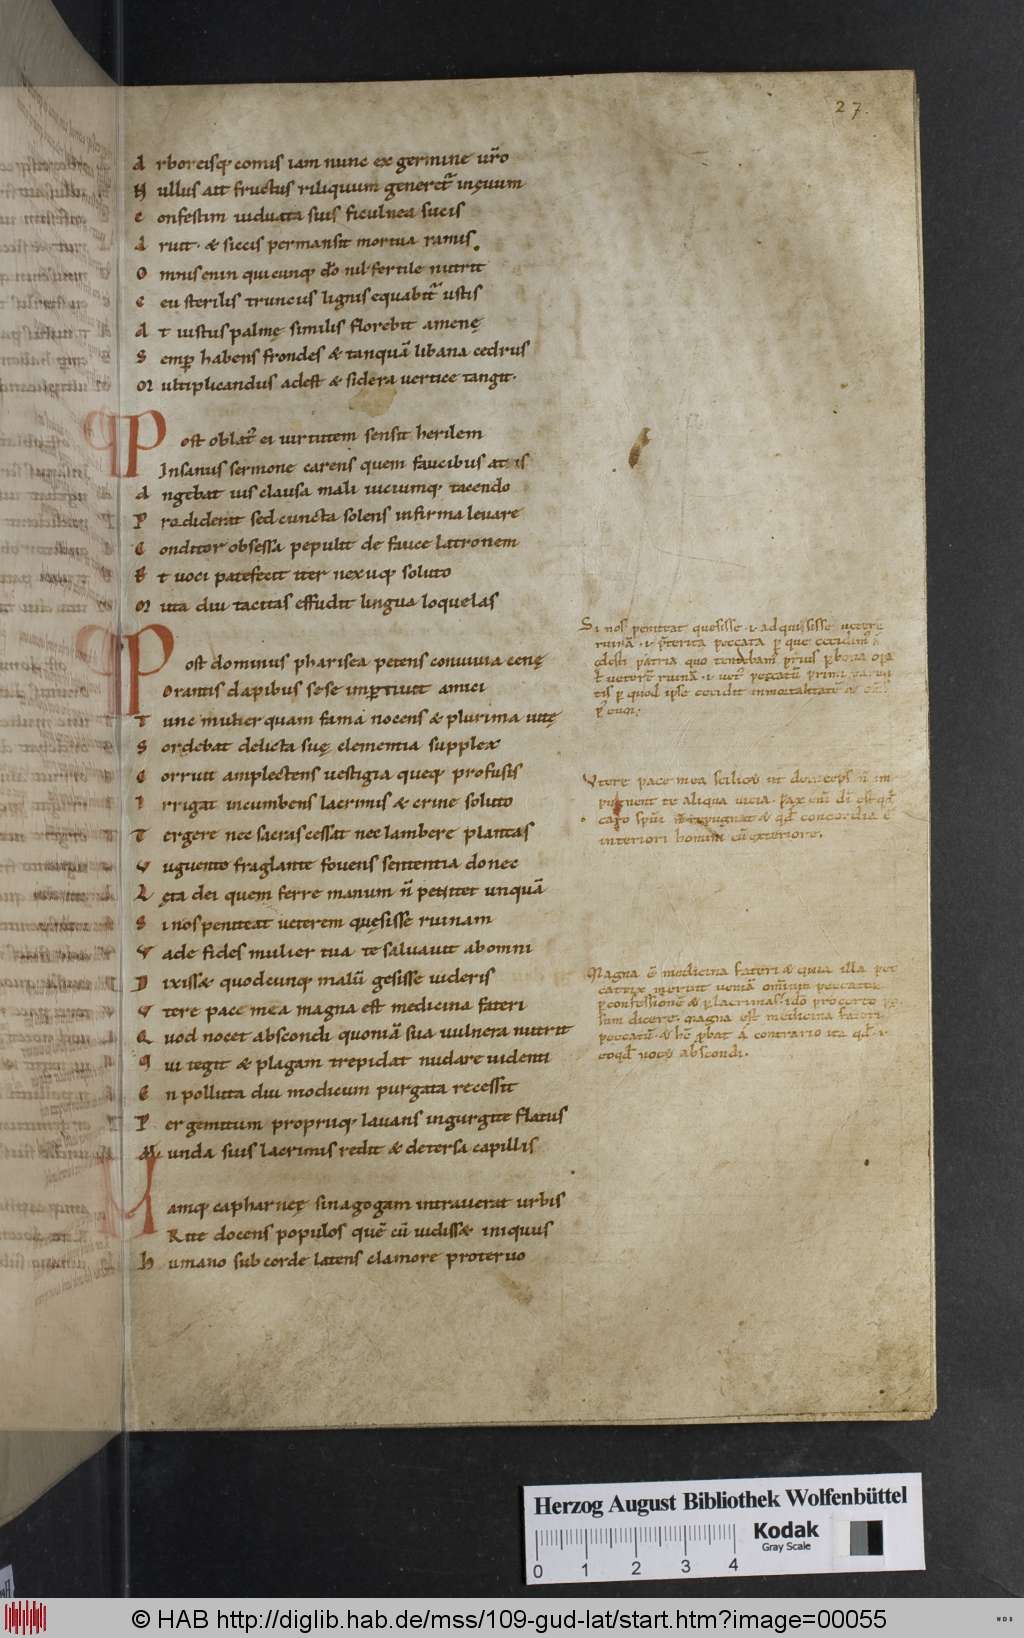 27.
Arboreisq; comis iam nunc ex germine vr̄o
Nullus ait fructus riliquum generet᷑ inęuum
Confestim uiduata suis ficulnea sucis
Aruit. & siccis permansit mortua ramis.
Omnis enim quicunq; dō nil fertile nutrit
Ceu sterilis truncus lignis equabit᷑ ustis
At iustus palmę similis florebit amenę
Semp habens frondes & tanquā libana cedrus
Multiplicandus adest & sidera uertice tangit.
Post oblat᷑ ei uirtutem sensit herilem
Insanus sermone carens quem faucibus at is
Angebat uis clausa mali uiciumq; tacendo
Prodiderat sed cuncta solens infirma leuare
Conditor obsessa pepulit de fauce latronem
Et uoci patefecit iter nexuq; soluto
Muta diu tacitas effudit lingua loquelas
Post dominus pharisea petens conuiuia cenę
Orantis dapibus sese impertiuit amici
Tunc mulier quam fama nocens & plurima uitę
Sordebat delicta suę clementia supplex
Corruit amplectens uestigia queq; profusis
Irrigat incumbens lacrimis & crine soluto
Tergere nec sacras cessat nec lambere plantas
Vnguento fraglante fouens sententia donec
Lęta dei quem ferre manum n̄ penitet unquā
Si nos peniteat ueterem quęsisse ruinam
Vade fides mulier tua te saluauit abomni
Dixissæ quodcunq; malū gesisse uideris
Vtere pace mea magna est medicina fateri
Quod nocet abscondi quoniā sua uulnera nutrit
Qui tegit & plagam trepidat nudare uidenti
En polluta diu modicum purgata recessit
Per gemitum propriiq; lauans ingurgite flatus
Munda suis lacrimis redit & detersa capillis
Namq; capharneę sinagogam intrauerat urbis
Rite docens populos quē cū uidissæ iniquus
Humano sub corde latens clamore proteruo
Si nos peniteat quesisse .i. adquisisse uetere
ruinā .i. p̄terita peccata p que cecidim᷒ a
cęlesti patria quo tendebam᷒ prius p bona opa
ł ueterē ruinā .i. uet᷒ peccatū primi paren
tis p quod ipse cecidit inmortalitate
p euā;
Vtere pace mea scilicet ut deinceps n̄ im
pugnent te aliqua uicia. Pax enī di est qd̄
caro spui n̄ repugnat & qd̄ concordia ē
interiori homini cū exteriore.
Magna ē medicina fateri & quia illa pec
catrix meruit ueniā omnium peccatorū
p confessionē & p lacrimas. ideo pro certo pos
sum dicere. magna est medicina fateri
peccatū & hē pbat a contrario ita qd̄
nocet abscondi.
Herzog August Bibliothek Wolfenbüttel
0 1 2 3 4
Kodak
Gray Scale
© HAB http://diglib.hab.de/mss/109-gud-lat/start.htm?image=00055
WDB